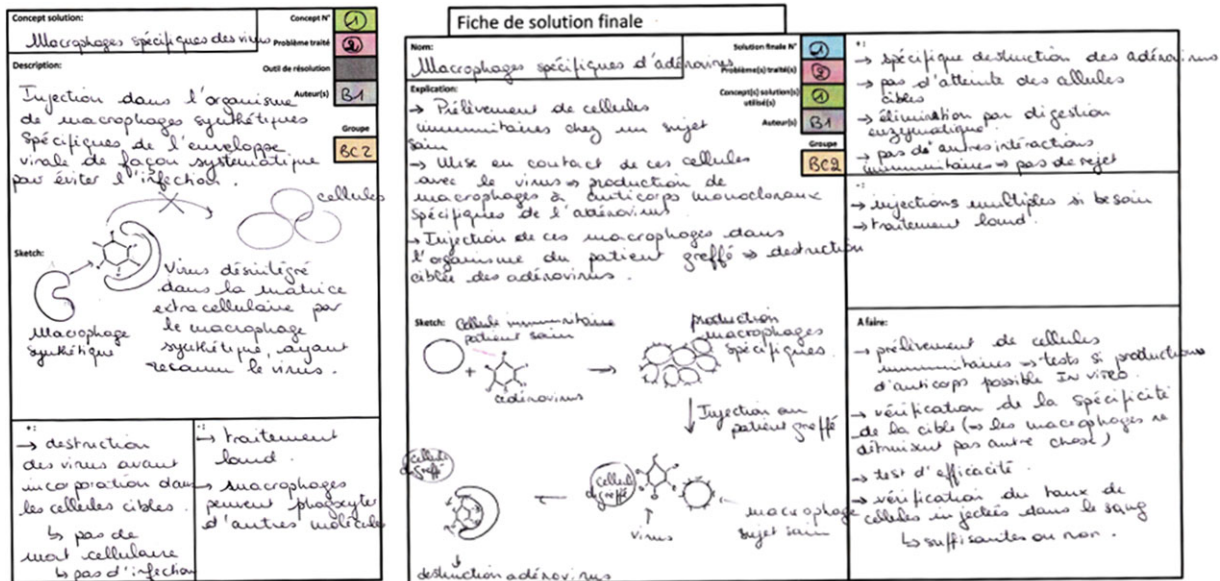 Concept solution:
Concept N°
1
Macrophages spécifiques des virus
Problème traité
2
Description:
Outil de résolution
Auteur(s)
B1
Groupe
BC2
Injection dans l'organisme
de macrophages synthétiques
spécifiques de l'enveloppe
virale de façon systématique
pour éviter l'infection.
cellules
Sketch:
Macrophage
synthétique
Virus désintégré
dans la matrice
extracellulaire par
le macrophage
synthétique, ayant
reconnu le virus.
+:
→ destruction
des virus avant
incorporation dans
les cellules cibles.
↳ pas de
mort cellulaire
↳ pas d'infection
-:
→ traitement
lourd.
→ macrophages
peuvent phagocyter
d'autres molécules
Fiche de solution finale
Nom:
Solution finale N°
1
Macrophages spécifiques d'adénovirus
Problème(s) traité(s)
2
Concept(s) solution(s)
utilisé(s)
1
Auteur(s)
B1
Groupe
BC2
Explication:
→ Prélèvement de cellules
immunitaires chez un sujet
sain
→ Mise en contact de ces cellules
avec le virus ⇒ production de
macrophages à anticorps monoclonaux
spécifiques de l'adénovirus
→ Injection de ces macrophages dans
l'organisme du patient greffé ⇒ destruction
ciblée des adénovirus.
Sketch:
Cellule immunitaire
patient sain
+
adénovirus
production
macrophages
spécifiques.
Injection au
patient greffé
cellule
greffé
virus
macrophage
sujet sain
cellule
greffé
destruction adénovirus
+:
→ spécifique destruction des adénovirus
→ pas d'atteinte des cellules
cibles
→ élimination par digestion
enzymatique.
→ pas de autres intéractions
immunitaires ⇒ pas de rejet
-:
→ injections multiples si besoin
→ traitement lourd.
A faire:
→ prélèvement de cellules
immunitaires → tests si productions
d'anticorps possible IN VITRO.
→ vérification de la spécificité
de la cible (⇒ les macrophages ne
détruisent pas autre chose)
→ test d'efficacité.
→ vérification du taux de
cellules injectées dans le sang
↳ suffisantes ou non.